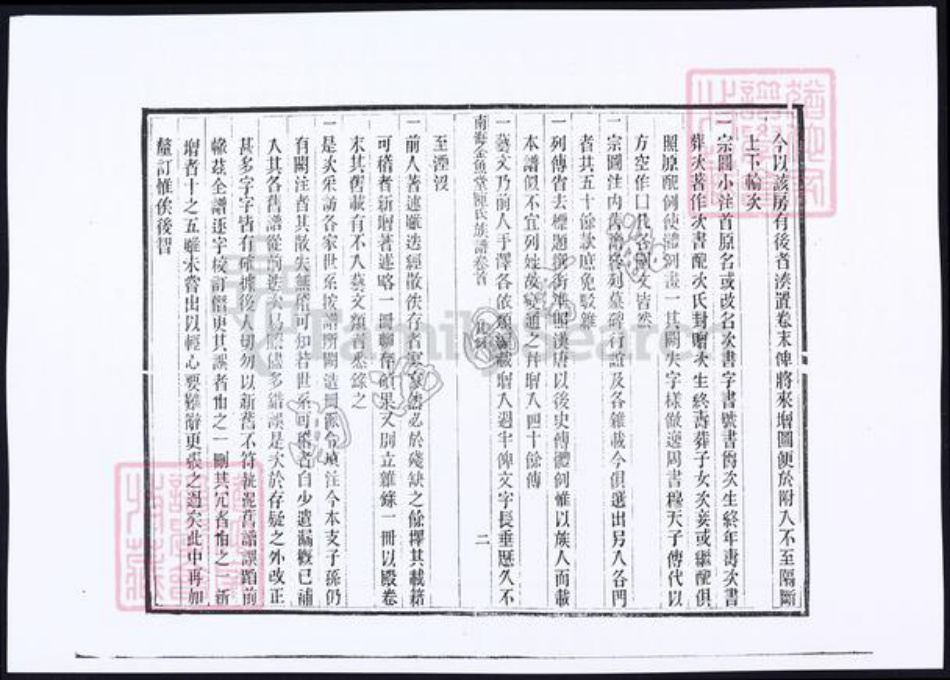 今以該房有後者湊置卷末俾將來增圖便於附入不至隔斷
上下輪次
一宗圖小注首原名或改名次書字書號書齒次生終年壽次書
葬次著作次書配次氏封贈次生終壽葬子女次妾或繼配俱
照原配例使體劃一其闕失字樣做逸周書穆天子傳代以
方空作囗代各闕文皆然
一宗圖注內舊譜各列墓碑行誼及各雜載今俱選出另入各門
者共五十餘款庶免駁雜
一列傳省去標題銜準照漢唐以後史傳體例惟以族人而載
本譜似不宜列姓故變通之幷增入四十餘傳
一藝文乃前人手澤各依類編載增入過半俾文字長垂歷久不
南海金魚堂陳氏族譜卷首
二
至湮沒
一前人著述雖迭經散佚存者寥寥然必於殘缺之餘擇其載籍
可稽者新增著述略一冊聊存碩果又別立雜錄一冊以殿卷
末其舊載有不入藝文類者悉錄之
一是次采訪各家世系按譜所闕造冊派令填注今本支子孫仍
有闕注者其散失無稽可知若世系可稽者自少遺漏概已補
入其各舊譜從前迭次易厯儘多錯誤是次於存疑之外改正
甚多字字皆有確據後人切勿以新舊不符執泥舊譜誤蹈前
轍茲全譜逐字校訂僭更其誤者十之一刪其冗者十之一新
增者十之五雖未嘗出以輕心要難辭更張之過矣此中再加
釐訂惟俟後賢